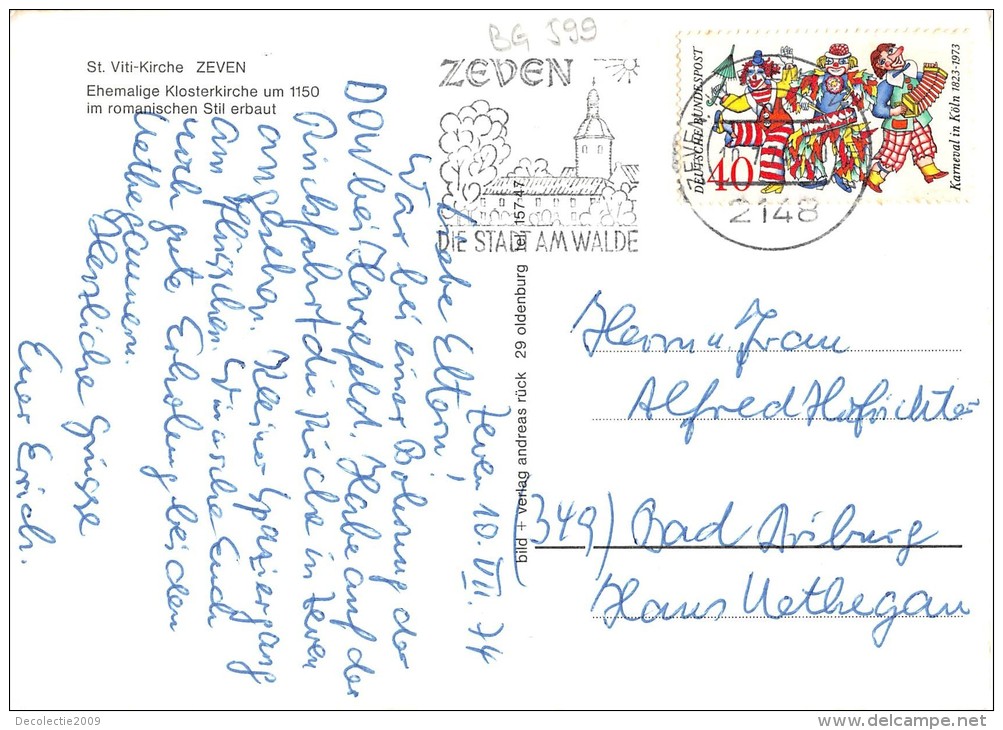 BG 599
St. Viti-Kirche ZEVEN
Ehemalige Klosterkirche um 1150
im romanischen Stil erbaut
ZEVEN
DIE STADT AM WALDE
2148
DEUTSCHE BUNDESPOST
40
Karneval in Köln 1823-1973
bild + verlag andreas rück 29 oldenburg tel. 157 47
Zeven 10. VII. 74
Liebe Eltern!
War bei einer Bohrung der
DDW bei Harsefeld. Habe auf der
Rückfahrt die Kirche in Zeven
angesehen. Kleiner Spaziergang
am Flüsschen. Wünsche Euch
noch gute Erholung bei den
Uethegamern.
Herzliche Grüsse
Euer Erich.
Herrn u. Frau
Alfred Hofrichter
(349) Bad Driburg
Haus Uethegan
Decolectie2009
www.delcampe.net